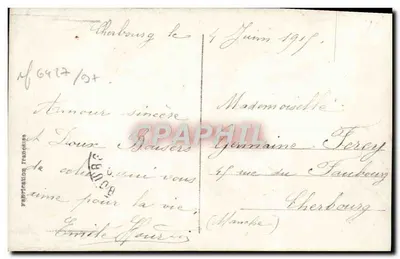 Cherbourg le 4 Juin 1915
nf 6427/97
Amour sincère
et Doux Baisers
de celui qui vous
aime pour la vie,
Emile
Mademoiselle
Germaine Ferey
rue du Faubourg
Cherbourg
(Manche)
Fabrication française
CARTHAPHILA